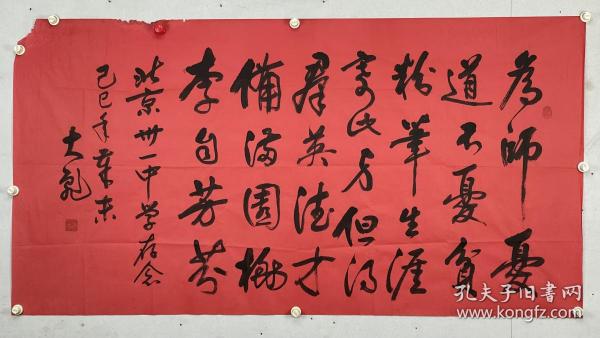 為師憂
道不憂貧
粉筆生涯
寄此身但得
羣英德才
備滿園桃
李自芳芬
北京卅一中学存念
己巳年末
大
孔夫子旧書网
www.kongfz.com